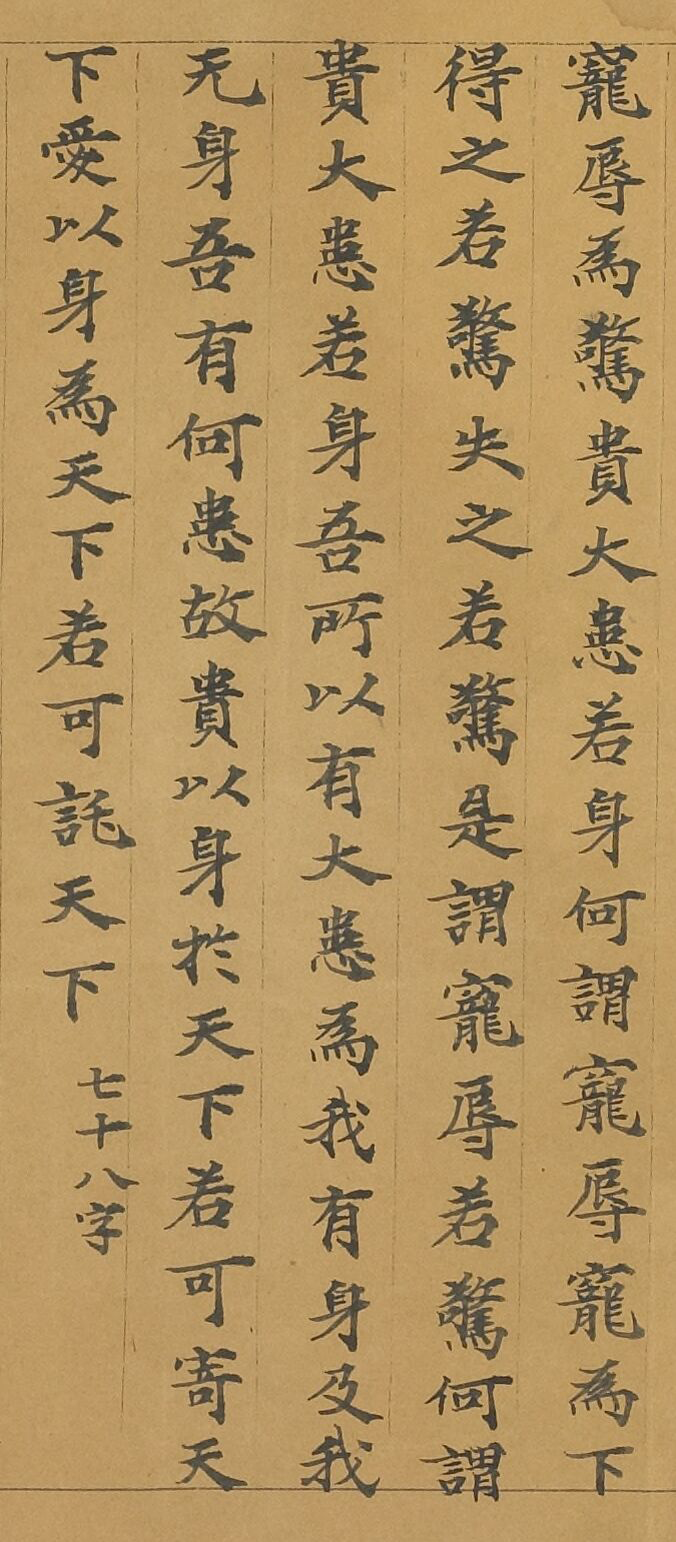 寵辱為驚貴大患若身何謂寵辱寵為下
得之若驚失之若驚是謂寵辱若驚何謂
貴大患若身吾所以有大患為我有身及我
无身吾有何患故貴以身於天下若可寄天
下愛以身為天下若可託天下
七十八字